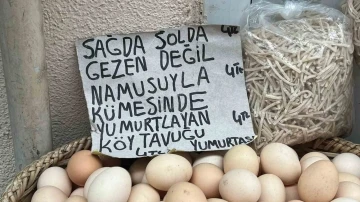 4TL
SAĞDA SOLDA
GEZEN DEĞİL
NAMUSUYLA 4TL
KÜMESİNDE
YUMURTLAYAN 4TL
KÖY TAVUĞU
4TL YUMURTASI